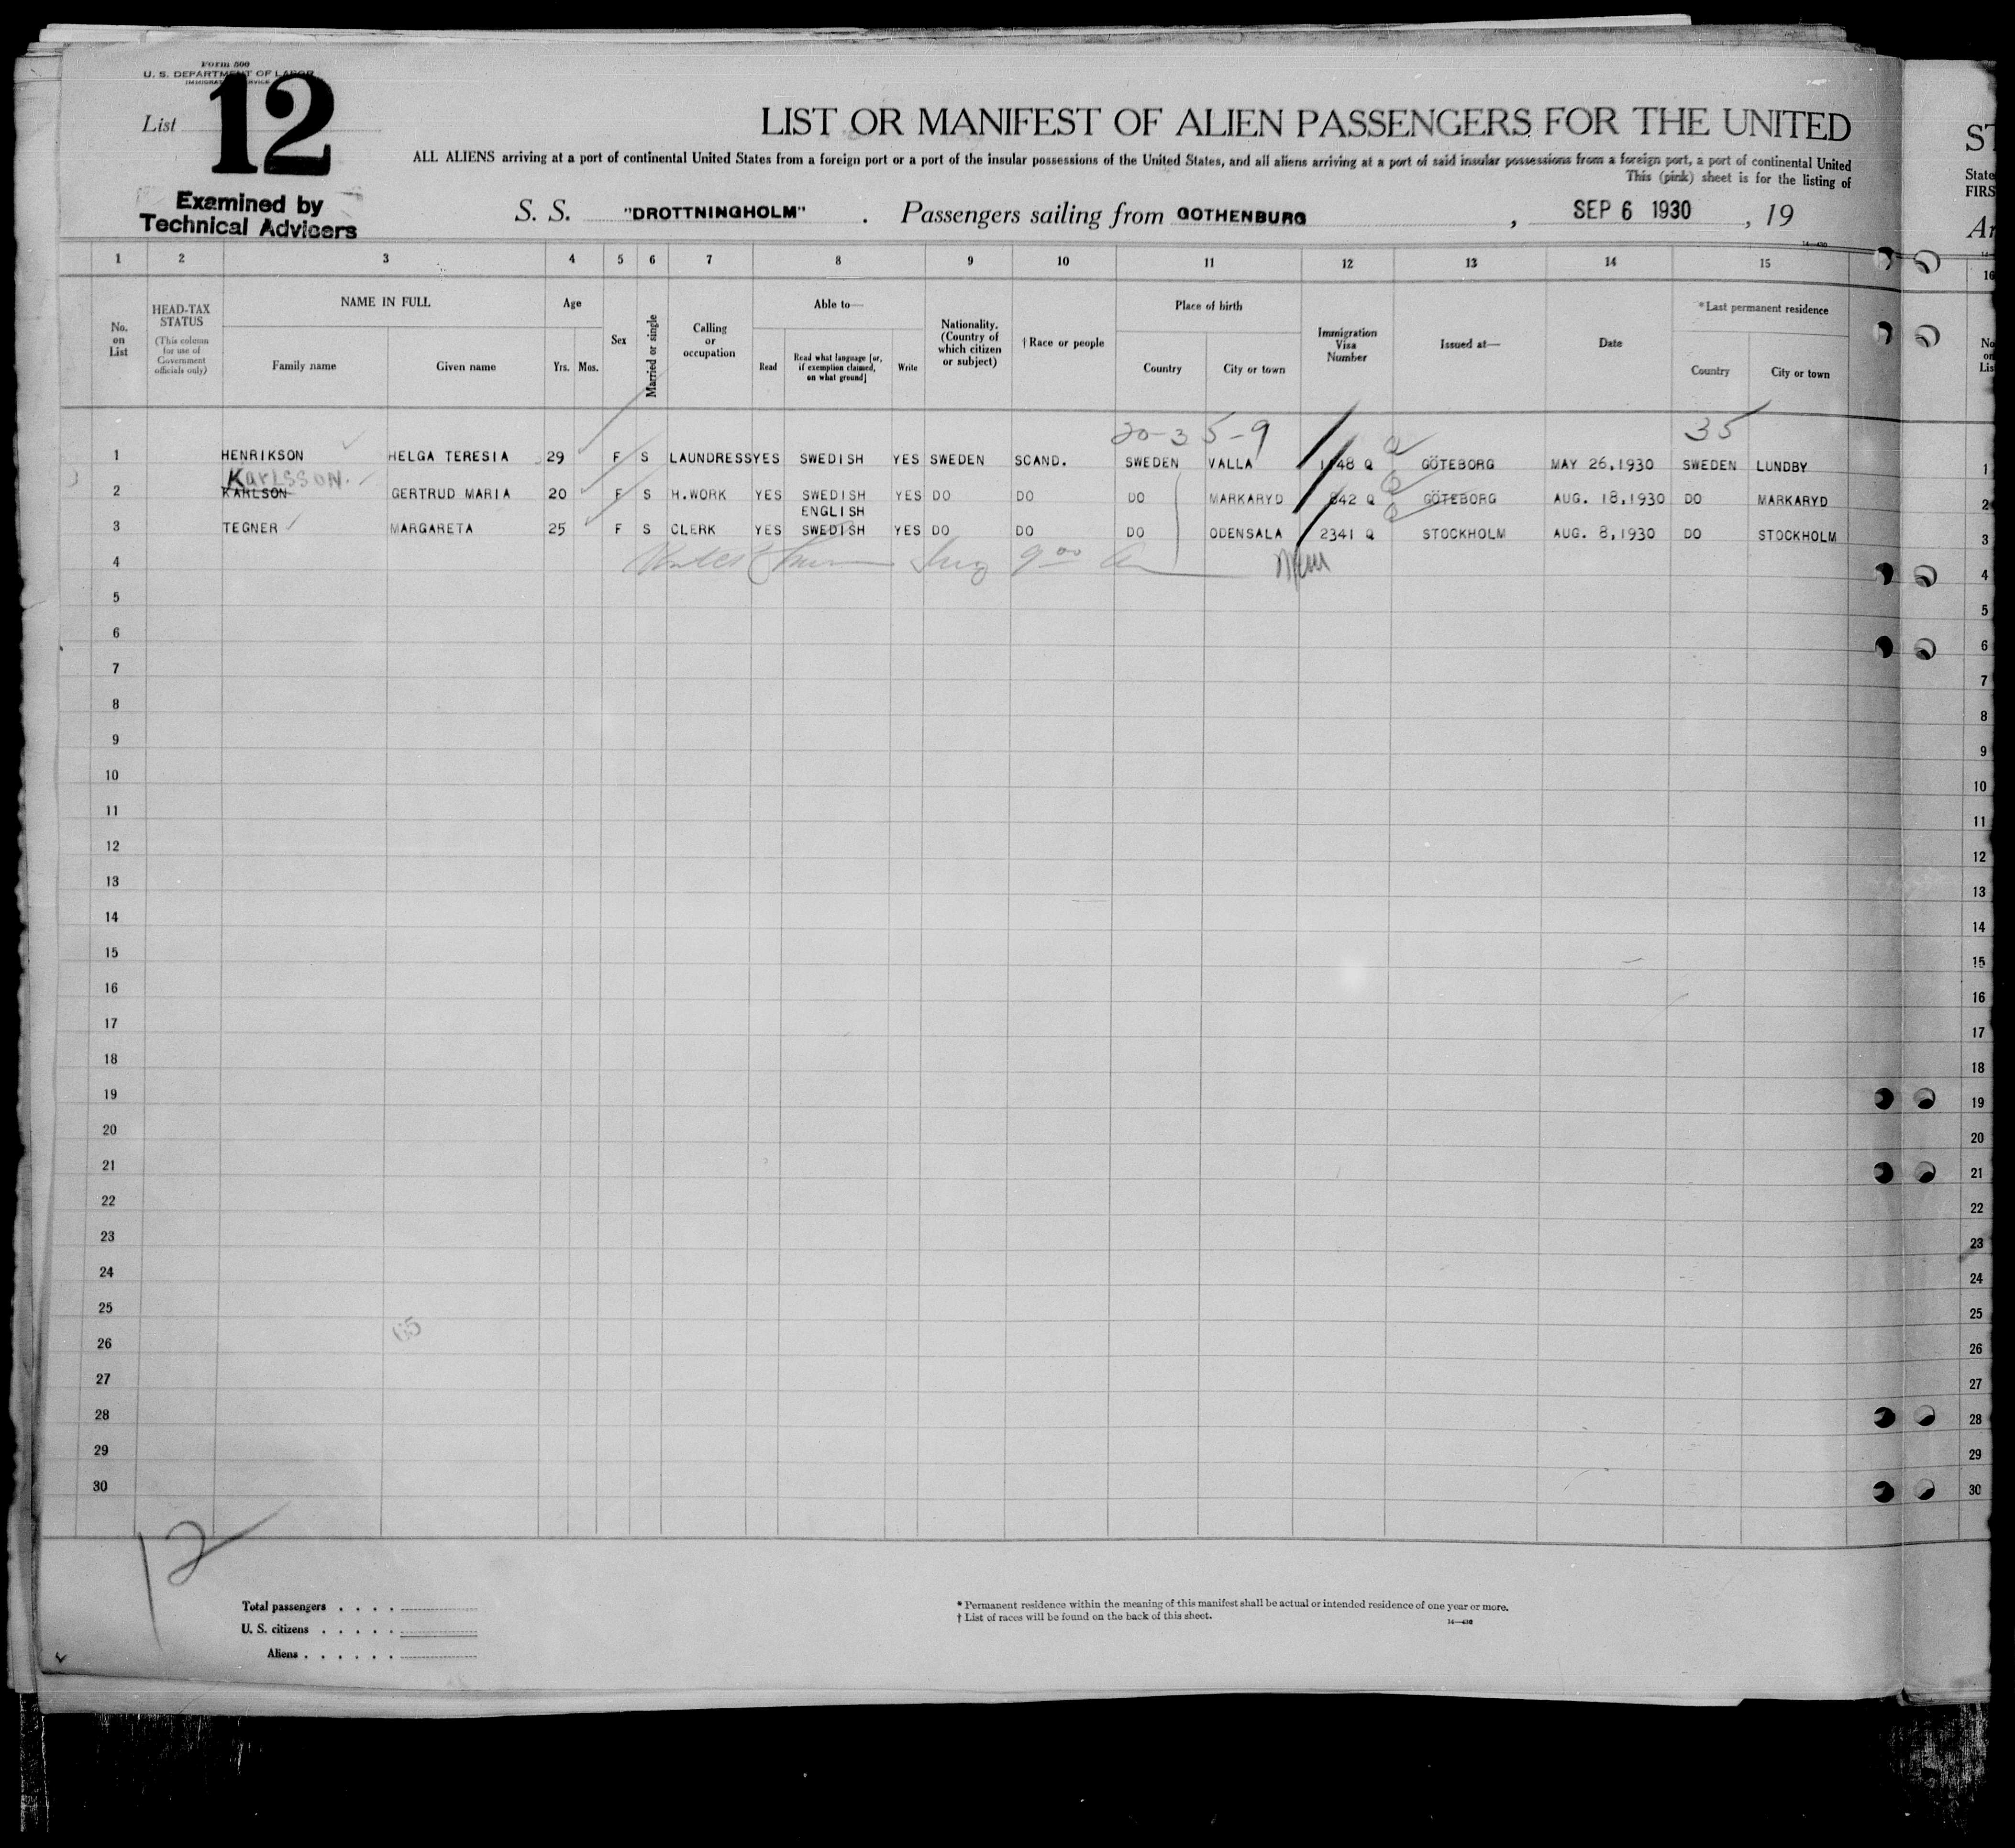 Form 500
U. S. DEPARTMENT OF LABOR
IMMIGRATION SERVICE
List 12
Examined by
Technical Advisers
LIST OR MANIFEST OF ALIEN PASSENGERS FOR THE UNITED
ALL ALIENS arriving at a port of continental United States from a foreign port or a port of the insular possessions of the United States, and all aliens arriving at a port of said insular possessions from a foreign port, a port of continental United
This (pink) sheet is for the listing of
S. S. "DROTTNINGHOLM" . Passengers sailing from GOTHENBURG , SEP 6 1930 , 19
ST
State
FIRS
Ar
14—430
1 2 3 4 5 6 7 8 9 10 11 12 13 14 15 16
No. on List
HEAD-TAX STATUS (This column for use of Government officials only)
NAME IN FULL Family name Given name
Age Yrs. Mos.
Sex
Married or single
Calling or occupation
Able to— Read Read what language [or, if exemption claimed, on what ground] Write
Nationality. (Country of which citizen or subject)
† Race or people
Place of birth Country City or town
Immigration Visa Number
Issued at—
Date
*Last permanent residence Country City or town
No on Lis
20-3 5-9 35
1 HENRIKSON HELGA TERESIA 29 F S LAUNDRESS YES SWEDISH YES SWEDEN SCAND. SWEDEN VALLA 48 Q GÖTEBORG MAY 26,1930 SWEDEN LUNDBY 1
KARLSSON.
2 KARLSON GERTRUD MARIA 20 F S H.WORK YES SWEDISH YES DO DO DO MARKARYD 842 Q GÖTEBORG AUG. 18,1930 DO MARKARYD 2
ENGLISH
3 TEGNER MARGARETA 25 F S CLERK YES SWEDISH YES DO DO DO ODENSALA 2341 Q STOCKHOLM AUG. 8,1930 DO STOCKHOLM 3
4 9 00 4
5 5
6 6
7 7
8 8
9 9
10 10
11 11
12 12
13 13
14 14
15 15
16 16
17 17
18 18
19 19
20 20
21 21
22 22
23 23
24 24
25 25
65
26 26
27 27
28 28
29 29
30 30
12
Total passengers . . . .
U. S. citizens . . . . .
Aliens . . . . . .
* Permanent residence within the meaning of this manifest shall be actual or intended residence of one year or more.
† List of races will be found on the back of this sheet.
14—430